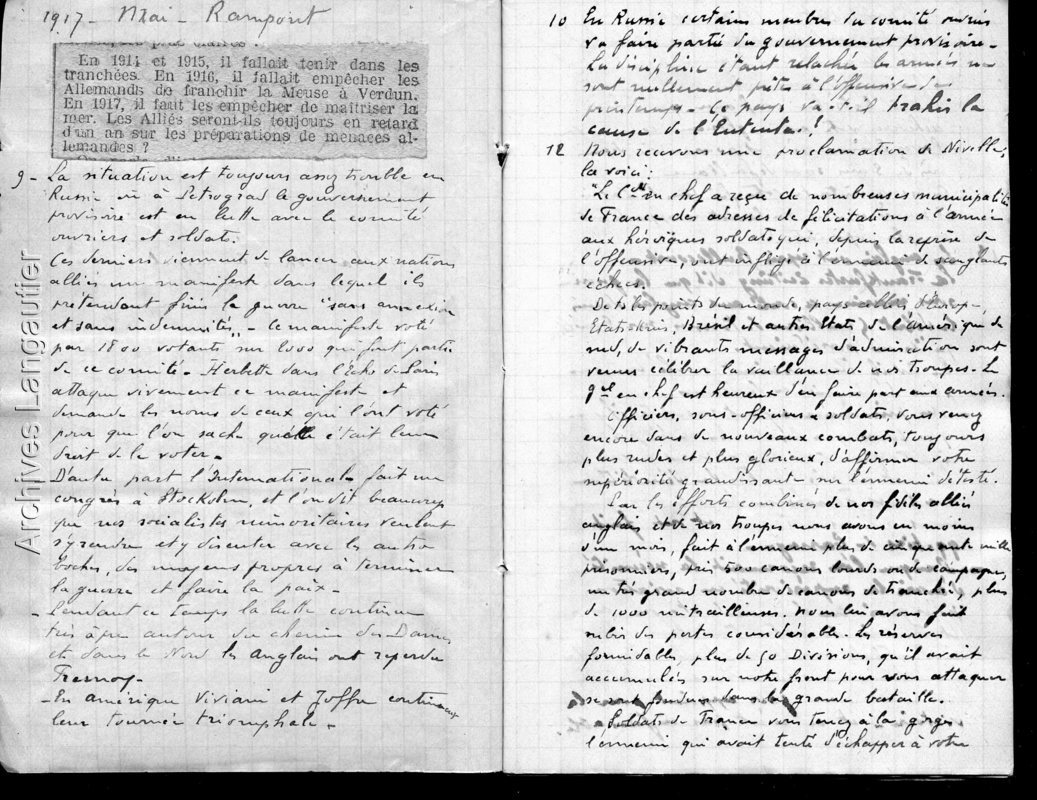 1917 - Mai - Rampont
En 1914 et 1915, il fallait tenir dans les
tranchées. En 1916, il fallait empêcher les
Allemands de franchir la Meuse à Verdun.
En 1917, il faut les empêcher de maîtriser la
mer. Les Alliés seront-ils toujours en retard
d'un an sur les préparations de menaces al-
lemandes ?
9 - La situation est toujours assez trouble en
Russie où à Petrograd le gouvernement
provisoire est en lutte avec le comité
ouvriers et soldats.
Ces derniers viennent de lancer aux nations
alliés un manifeste dans lequel ils
prétendent finir la guerre "sans annexion
et sans indemnités" - Ce manifeste voté
par 1800 votants sur 2000 qui font partie
de ce comité - Herbette dans l'Echo de Paris
attaque vivement ce manifeste et
demande les noms de ceux qui l'ont voté
pour que l'on sache quelle était leur
droit de la voter -
D'autre part l'Internationale fait un
congrès à Stockolm, et l'on dit beaucoup
que nos socialistes minoritaires veulent
s'y rendre et y discuter avec les austro
boches, des moyens propres à terminer
la guerre et faire la paix -
- Pendant ce temps la lutte continue
très âpre autour du chemin des Dames
et dans le Nord les anglais ont reperdu
Fresnoy -
- En amérique Viviani et Joffre continuent
leur tournée triomphale -
Archives Langautier
10 En Russie certains membres du comité ouvriers
va faire partie du gouvernement provisoire -
La discipline étant relachée les armées ne
sont nullement prêtes à l'offensive de
printemps - Ce pays va-t-il trahir la
cause de l'Entente !
12 Nous recevons une proclamation de Nivelle,
la voici :
"Le Gal en chef a reçu de nombreuses municipalités
de France des adresses de félicitations à l'armée
aux héroïques soldats qui, depuis la reprise de
l'offensive, ont infligé à l'ennemi de sanglants
échecs.
De ts les points du monde, pays alliés d'Europe,
Etats-Unis, Brésil et autres Etats de l'amérique du
sud, de vibrants messages d'admiration sont
venus célébrer la vaillance de nos troupes - Le
gal en chef est heureux d'en faire part aux armées.
Officiers, sous-officiers & soldats, vous venez
encore dans de nouveaux combats, toujours
plus rudes et plus glorieux, d'affirmer votre
supériorité grandissante sur l'ennemi détesté.
Par les efforts combinés de nos fidèles alliés
anglais et de nos troupes nous avons en moins
d'un mois, fait à l'ennemi plus de cinquante mille
prisonniers, pris 500 canons lourds ou de campagne,
un très grand nombre de canons de tranchée, plus
de 1000 mitrailleuses. Nous lui avons fait
subir des pertes considérables. Les réserves
formidables, plus de 50 Divisions, qu'il avait
accumulés sur notre front pour vous attaquer
se sont fondues dans la grande bataille.
Soldats de France vous tenez à la gorge
l'ennemi qui avait tenté d'échapper à votre